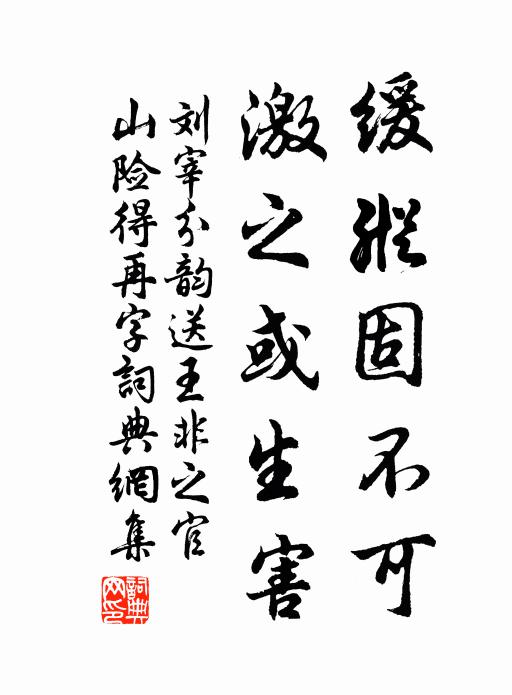 缓纵固不可
激之或生害
刘宰分韵送王非之官
山险得再字詞典網集
詞典网印